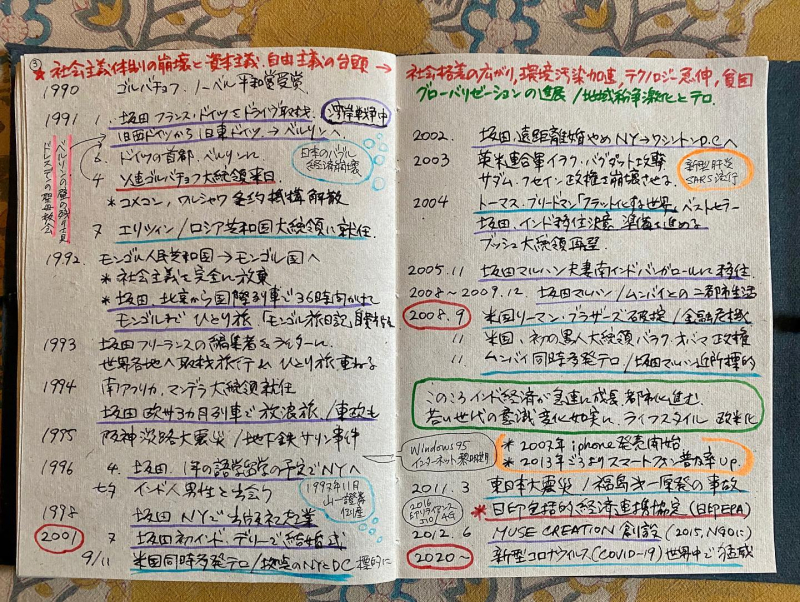 ③
★ 社会主義体制の崩壊と資本主義、自由主義の台頭 →
1990 ゴルバチョフ、ノーベル平和賞受賞
1991 1. 坂田 フランス・ドイツをドライヴ取材. 湾岸戦争中
旧西ドイツから旧東ドイツ、→ ベルリンへ.
6. ドイツの首都、ベルリンに.
日本のバブル
経済崩壊
4 ソ連ゴルバチョフ大統領来日
*コメコン、ワルシャワ条約機構 解散
7 エリツィン/ロシア共和国大統領に就任.
ベルリンの壁の残り
ドレスデンの聖母教会
1992. モンゴル人民共和国 → モンゴル国へ
*社会主義を完全に放棄
*坂田、北京から国際列車で36時間かけて
モンゴルまで ひとり旅. 「モンゴル旅日記」自費
1993 坂田 フリーランスの編集者&ライターに.
世界各地へ取材旅行 & ひとり旅 重ねる
1994 南アフリカ、マンデラ大統領就任
坂田 欧州3カ月列車で放浪旅. /東欧も
1995 阪神淡路大震災 / 地下鉄サリン事件
Windows95
インターネット黎明期
1996 4. 坂田. 1年の語学留学の予定でNYへ
七夕 インド人男性と出会う
1997年11月
山一證券
倒産
1998 坂田 NYで出版社を起業
2001 7 坂田初インド. デリーで結婚式
9/11 米国同時多発テロ / 拠点のNYとDC 標的に
社会格差の広がり, 環境汚染加速, テクノロジー急伸, 貧困
グローバリゼーションの進展 / 地域紛争激化とテロ.
2002. 坂田. 遠距離離婚やめ NY→ワシントンD.C.へ
2003 英米連合軍イラク・バグダット攻撃
サダム・フセイン政権を崩壊させる.
新型肺炎
SARS流行
2004 トーマス・フリードマン「フラット化する世界」ベストセラー
坂田、インド移住決意 準備を進める
ブッシュ大統領再選
2005.11 坂田マルハン夫妻南インド・バンガロールに移住.
2008~2009.12. 坂田マルハン / ムンバイとの二都市生活
2008.9 米国リーマン・ブラザーズ破綻 / 金融危機
11 米国、初の黒人大統領バラク・オバマ政権
11 ムンバイ同時多発テロ / 坂田マルハン近所標的
このころインド経済が急速に成長 都市化進む.
若い世代の意識変化如実に. ライフスタイル 欧米化
*2007年 iphone発売開始
*2013年ごろよりスマートフォン普及率 UP.
2011.3 東日本大震災 / 福島第一原発の事故
2016
JIO/4G
*日印包括的経済連携協定 (日印EPA)
2012.6 MUSE CREATION 創設 (2015, NGOに)
2020~ 新型コロナウイルス (COVID-19) 世界中で猛威